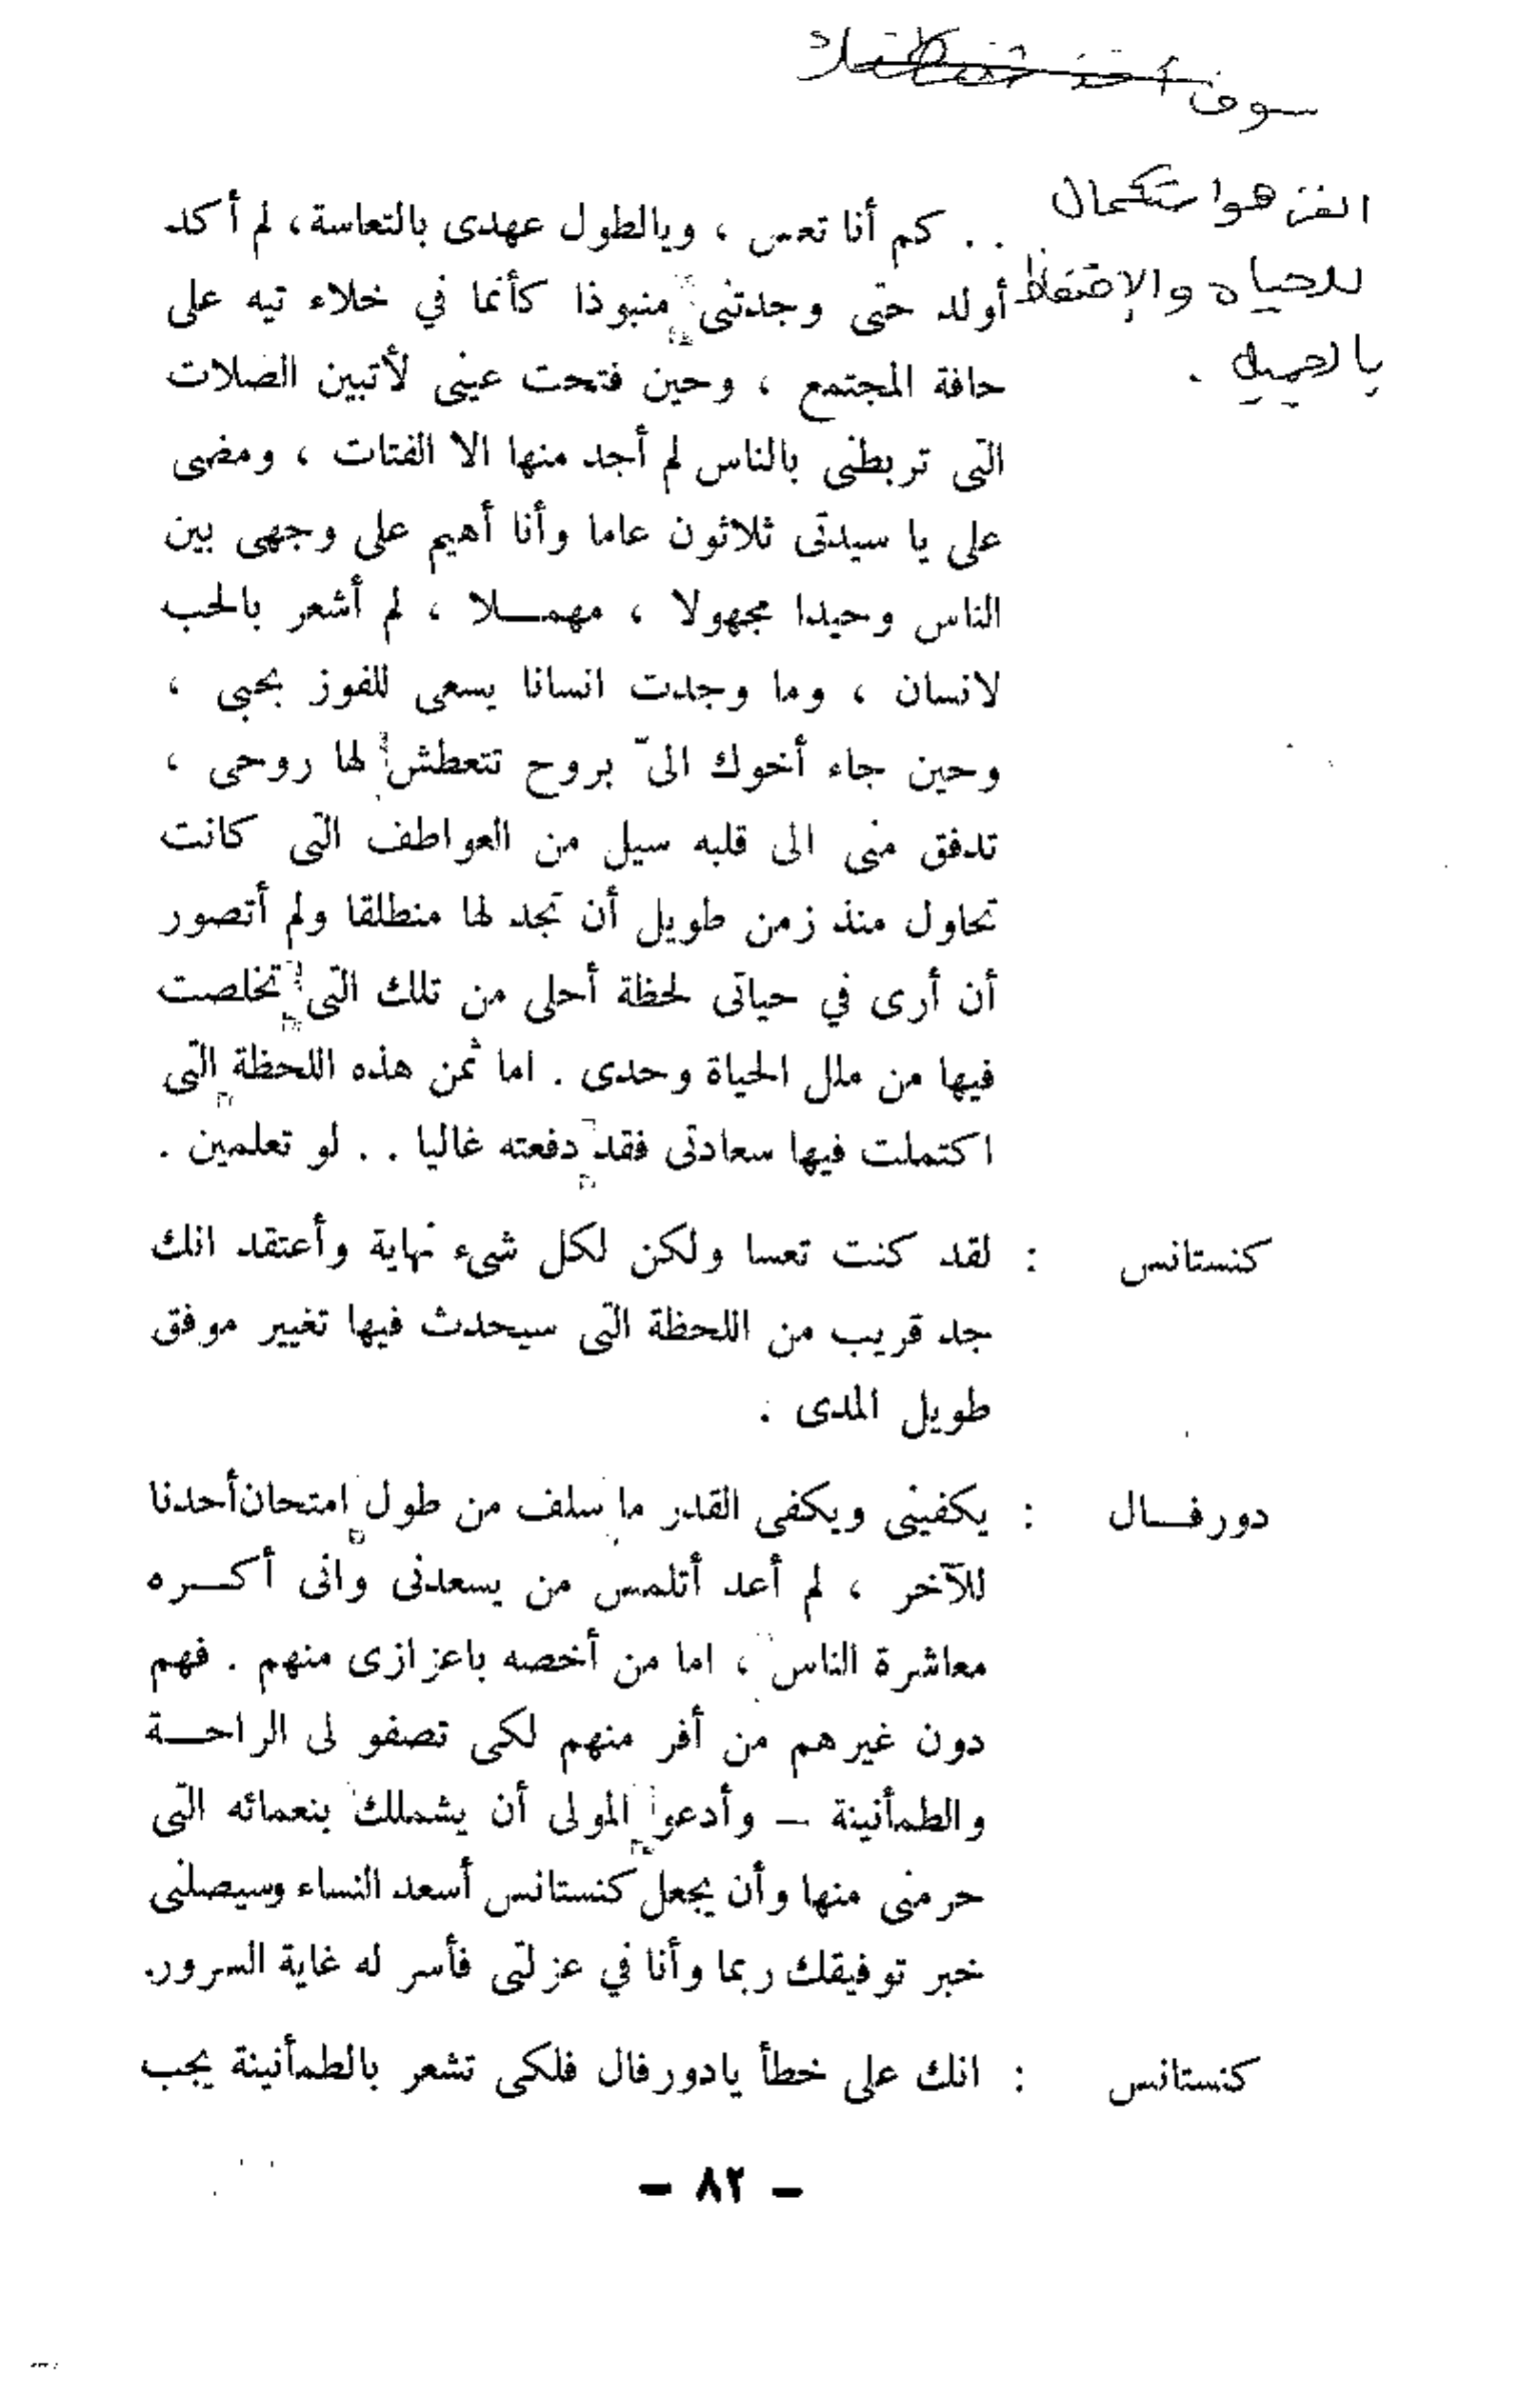 سوف
الفن هو استكمال
للحياه والإحتفاظ
بالجميل .
. . كم أنا تعس ، ويالطول عهدى بالتعاسة، لم أكد
أولد حتى وجدتنى منبوذا كأنما في خلاء تيه على
حافة المجتمع ، وحين فتحت عينى لأتبين الصلات
التى تربطنى بالناس لم أجد منها الا الفتات ، ومضى
على يا سيدتى ثلاثون عاما وأنا أهيم على وجهى بين
الناس وحيدا مجهولا ، مهمـلا ، لم أشعر بالحب
لانسان ، وما وجدت انسانا يسعى للفوز بحبى ،
وحين جاء أخوك الىّ بروح تتعطش لها روحى ،
تدفق منى الى قلبه سيل من العواطف التى كانت
تحاول منذ زمن طويل أن تجد لها منطلقا ولم أتصور
أن أرى في حياتى لحظة أحلى من تلك التى تخلصت
فيها من ملل الحياة وحدى . اما ثمن هذه اللحظة التى
اكتملت فيها سعادتى فقد دفعته غاليا . . لو تعلمين .
كنستانس : لقد كنت تعسا ولكن لكل شىء نهاية وأعتقد انك
جد قريب من اللحظة التى سيحدث فيها تغيير موفق
طويل المدى .
دورفـال : يكفينى ويكفى القدر ما سلف من طول امتحان أحدنا
للآخر ، لم أعد أتلمس من يسعدنى وانى أكـره
معاشرة الناس ، اما من أخصه باعزازى منهم . فهم
دون غيرهم من أفر منهم لكى تصفو لى الراحـة
والطمأنينة – وأدعوا المولى أن يشملك بنعمائه التى
حرمنى منها وأن يجعل كنستانس أسعد النساء وسيصلنى
خبر توفيقك ربما وأنا في عزلتى فأسر له غاية السرور.
كنستانس : انك على خطأ يادورفال فلكى تشعر بالطمأنينة يجب
– ٨٢ –